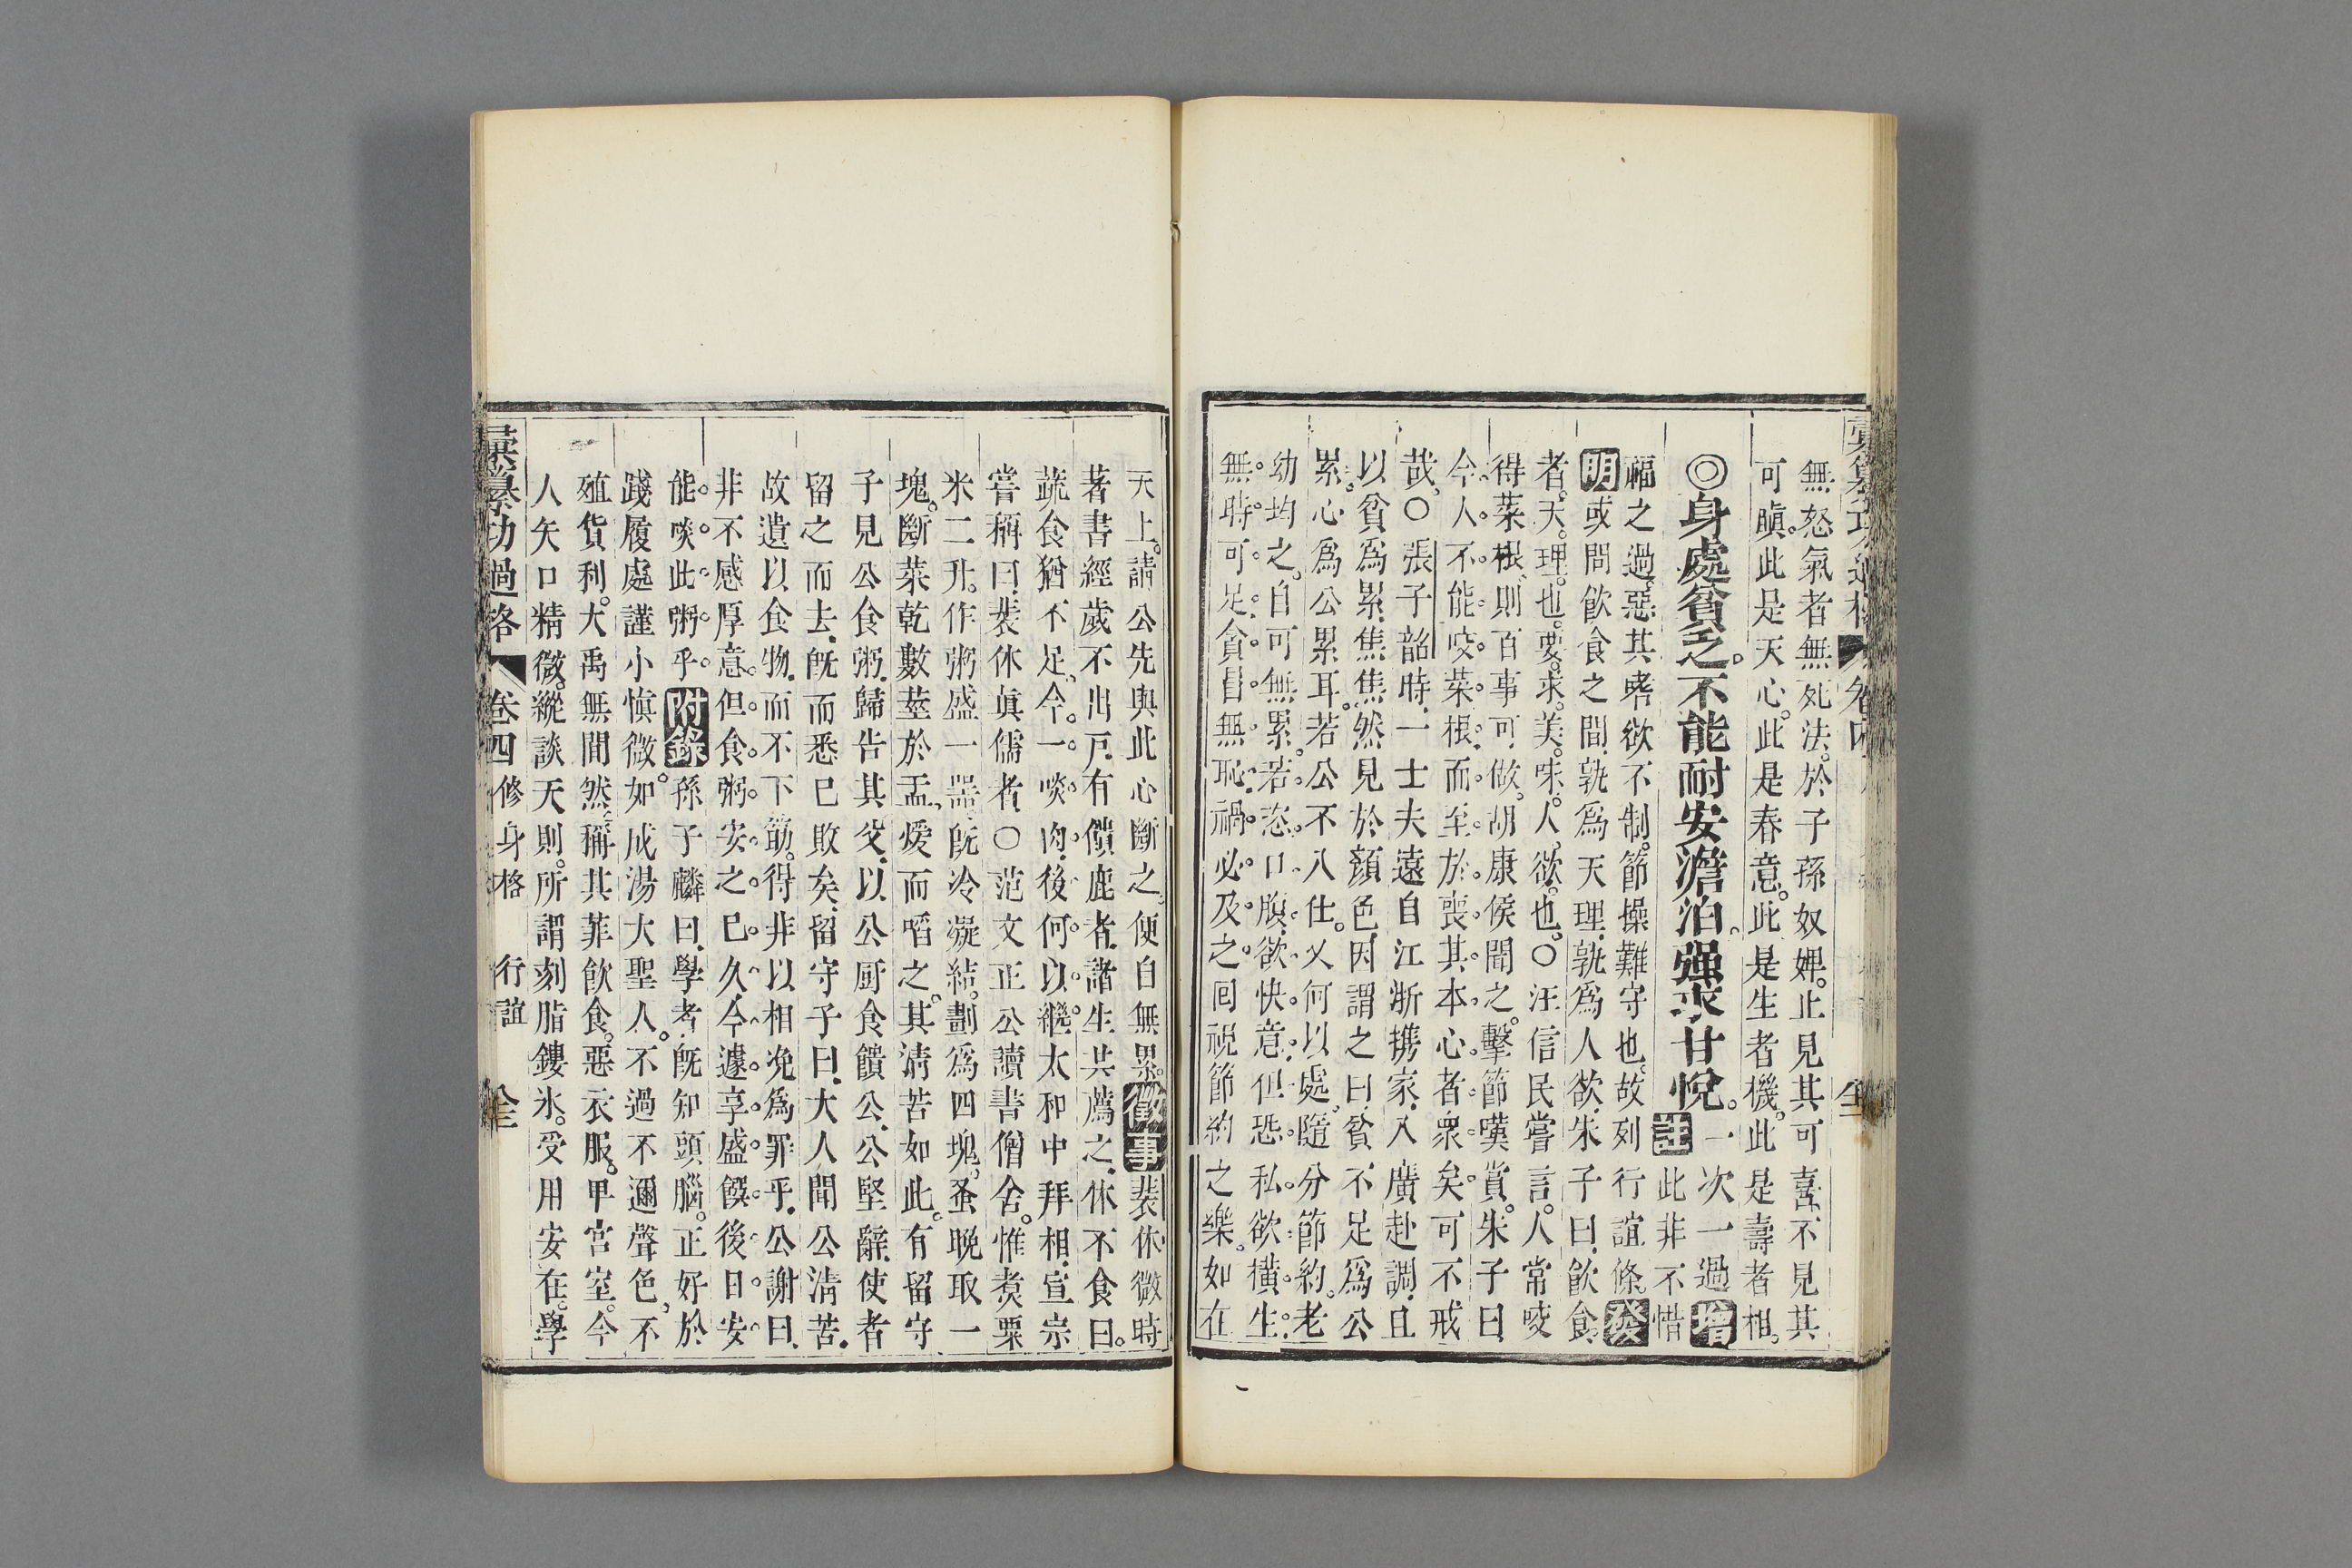 彙纂功過格 卷四 全
無怒氣者無死法。於子孫奴婢。止見其可喜、不見其
可瞋。此是天心。此是春意。此是生者機。此是壽者相。
◎身處貧乏。不能耐安澹泊。强求甘悅。一次一過增
註此非不惜
福之過。惡其嗜欲不制。節操難守也。故列行誼條。發
明或問飲食之間、孰爲天理、孰爲人欲、朱子曰、飲食
者。天理也。要求美味。人欲也。〇汪信民嘗言。人常咬
得菜根、則百事可做。胡康侯聞之。擊節嘆賞。朱子曰、
今人不能咬菜根、而至於喪其本心者衆矣。可不戒
哉。〇張子韶時、一士夫遠自江浙携家、入廣赴調、且
以貧爲累、焦焦然見於顏色。因謂之曰、貧不足爲公
累。心爲公累耳。若公不入仕。又何以處。隨分節約。老
幼均之。自可無累。若恣口腹、欲快意。但恐私欲橫生。
無時可足。貪冒無恥。禍必及之。囘視節約之樂。如在
天上。請公先與此心斷之。便自無累。徵事裴休微時
著書經歲不出戸、有饋鹿者、諸生共薦之、休不食曰。
蔬食猶不足、今一啖肉。後何以繼。太和中拜相、宣宗
嘗稱曰、裴休眞儒者、〇范文正公讀書僧舍。惟煮粟
米二升。作粥盛一器、旣冷凝結。劃爲四塊。蚤晚取一
塊。斷菜乾數莖於盂、煖而啗之。其淸苦如此。有留守
子見公食粥、歸告其父、以公厨食饋公、公堅辭、使者
留之而去、旣而悉已敗矣、留守子曰、大人聞公淸苦、
故遺以食物、而不下筯。得非以相浼爲罪乎、公謝曰、
非不感厚意。但食粥安之已久、今遽享盛饌後日安
能啖此粥乎。附錄孫子麟曰、學者旣知頭腦。正好於
踐履處謹小愼微。如成湯大聖人。不過不邇聲色、不
殖貨利。大禹無間然、稱其菲飲食。惡衣服。卑宮室。今
人矢口精微。縱談天則。所謂刻脂鏤氷。受用安在。學
彙纂功過格 卷四 修身格 行誼 全